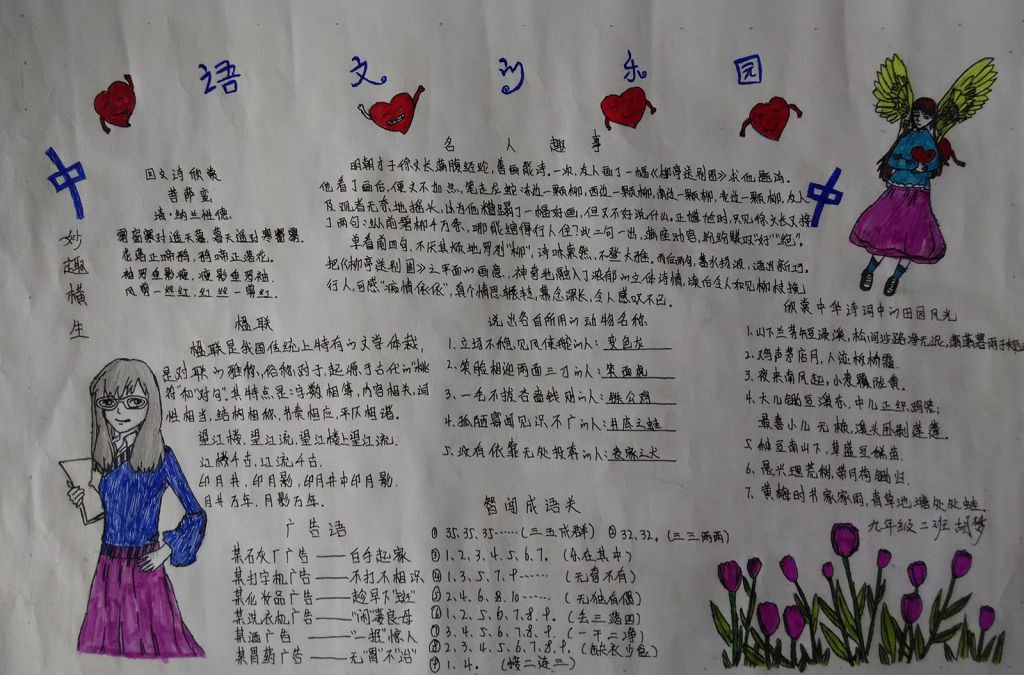 语文的乐园
中
妙趣横生
回文诗欣赏
菩萨蛮
清·纳兰性德
雾窗寒对遥天暮,暮天遥对寒窗雾。
花落正啼鸦,鸦啼正落花。
袖罗垂影瘦,瘦影垂罗袖。
风剪一丝红,红丝一剪风。
名人趣事
明朝才子徐文长满腹经纶,善画能诗。一次,友人画了一幅《柳亭送别图》求他题诗。
他看了画后,便文不加点,笔走龙蛇:东边一颗柳,西边一颗柳,南边一颗柳,北边一颗柳,友人
及观者无奈地摇头,以为他糟蹋了一幅好画,但又不好说什么。正尴尬时,只见徐文长又接
了两句:纵前碧柳千万条,哪能绾得行人住?此二句一出,满座动容,纷纷赞叹"好""绝"。
单看前四句,不厌其烦地罗列"柳",诗味索然,不登大雅。而后两句,
把《柳亭送别图》之平面的画意,神奇地融入了浓郁的立体诗情,读后令人如见柳枝挽
行人,可感"痴情依依",真个情思辗转,慕念深长,令人感叹不已。
中
楹联
楹联是我国传统上特有的文学体裁,
是对联的雅称,俗称对子,起源于古代的"桃
符"和"对句"。其特点是:字数相等,内容相关,词
性相当,结构相称,节奏相应,平仄相谐。
望江楼,望江流,望江楼上望江流,
江楼千古,江流千古。
印月井,印月影,印月井中印月影,
月井万年,月影万年。
说出各自所用的动物名称
1.立场不稳,见风使舵的人:变色龙
2.笑脸相迎两面三刀的人:笑面虎
3.一毛不拔吝啬钱财的人:铁公鸡
4.孤陋寡闻见识不广的人:井底之蛙
5.没有依靠无处投奔的人:丧家之犬
欣赏中华诗词中的田园风光
1.山下兰芽短浸溪,松间沙路净无泥,潇潇暮雨子规
2.鸡声茅店月,人迹板桥霜。
3.夜来南风起,小麦覆陇黄。
4.大儿锄豆溪东,中儿正织鸡笼;
最喜小儿无赖,溪头卧剥莲蓬。
5.种豆南山下,草盛豆苗苗。
6.晨兴理荒秽,带月荷锄归。
7.黄梅时节家家雨,青草池塘处处蛙。
九年级二班 胡梦
广告语
某石灰厂广告——白手起家
某打字机广告——不打不相识
某化妆品广告——趁早下"斑"
某洗衣机广告——"闲"妻良母
某酒广告——"一抿"惊人
某胃药广告——无"胃"不"治"
智闯成语关
①35.35.35……(三五成群)②32.32。(三三两两)
③1.2.3.4.5.6.7。(乐在其中)
④1.3.5.7.9……(无奇不有)
⑤2.4.6.8.10……(无独有偶)
⑥1.2.5.6.7.8.9。(丢三落四)
⑦3.4.5.6.7.8.9。(一干二净)
⑧2.3.4.5.6.7.8.9。(缺衣少包)
⑨1.4。(接二连三)